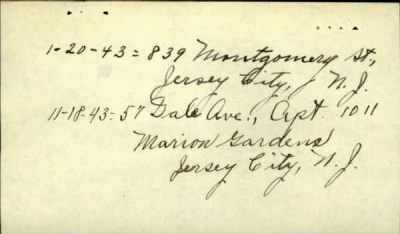 1-20-43 = 839 Montgomery St.,
Jersey City, N.J.
11-18-43 = 57 Dale Ave., Apt. 1011
Marion Gardens
Jersey City, N.J.